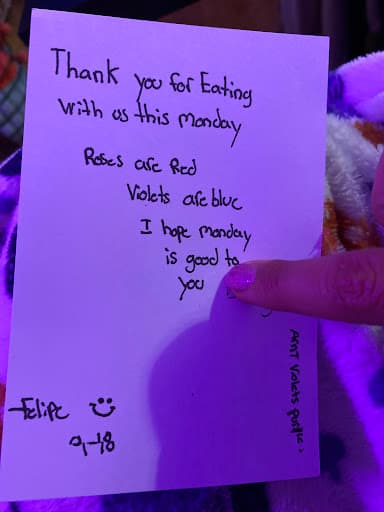 Thank you for Eating
with us this monday
Roses are Red
Violets are blue
I hope monday
is good to
you
Arnt Violets purple?
-Felipe
9-18